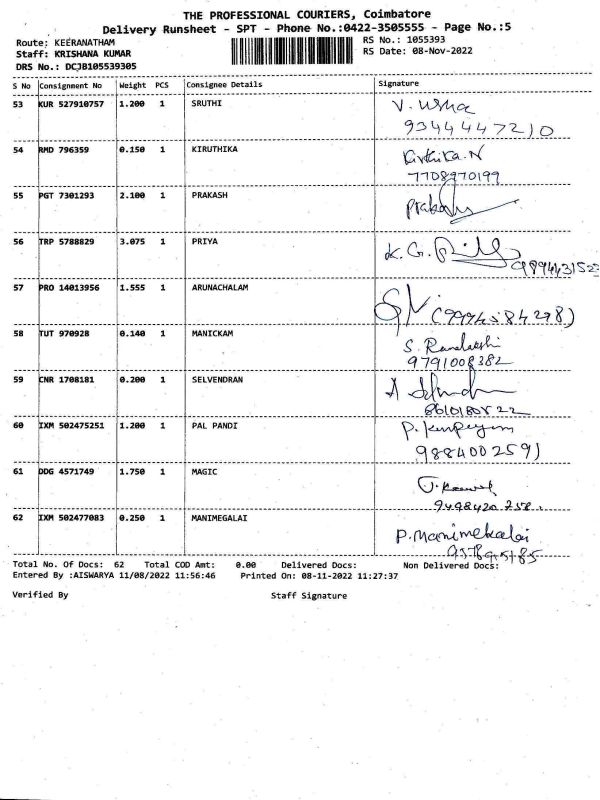 THE PROFESSIONAL COURIERS, Coimbatore
Delivery Runsheet - SPT - Phone No.:0422-3505555 - Page No.:5
Route: KEERANATHAM
RS No.: 1055393
Staff: KRISHANA KUMAR
RS Date: 08-Nov-2022
DRS No.: DCJB105539305
S No Consignment No Weight PCS Consignee Details Signature
53 KUR 527910757 1.200 1 SRUTHI V. Usha
9344447210
54 RMD 796359 0.150 1 KIRUTHIKA Kirthika.N
7708970199
55 PGT 7301293 2.100 1 PRAKASH Prakash
56 TRP 5788829 3.075 1 PRIYA K. G.
9894431523
57 PRO 14013956 1.555 1 ARUNACHALAM
(9994584298)
58 TUT 970928 0.140 1 MANICKAM S.
9791008382
59 CNR 1708181 0.200 1 SELVENDRAN A
8610180822
60 IXM 502475251 1.200 1 PAL PANDI P.
9884002591
61 DDG 4571749 1.750 1 MAGIC
9498420758.
62 IXM 502477083 0.250 1 MANIMEGALAI P. Manimekalai
Total No. Of Docs: 62 Total COD Amt: 0.00 Delivered Docs: Non Delivered Docs:
Entered By :AISWARYA 11/08/2022 11:56:46 Printed On: 08-11-2022 11:27:37
Verified By Staff Signature